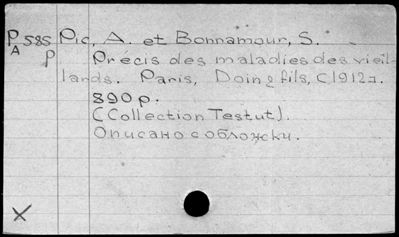 P 585 Pic, A. et Bonnamour, S.
A p Précis des maladies des vieil-
lards. Paris, Doin & fils, [1912].
890 p.
(Collection Testut).
Описано с обложки.
X